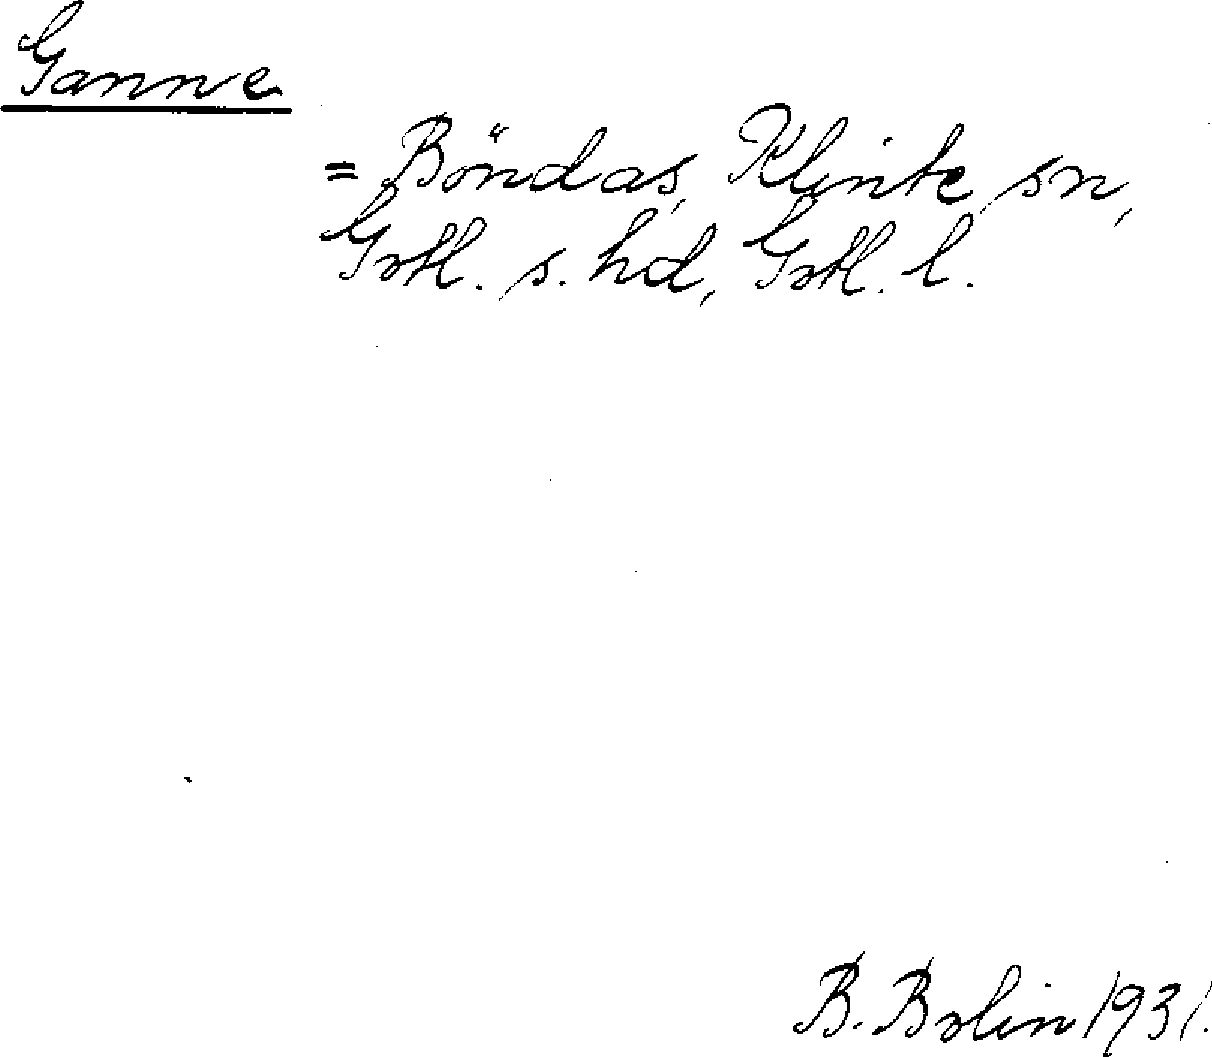 Ganne
= Böndas, Klinte sn,
Gotl. s. hd, Gotl. l.
B. Bolin 1931.